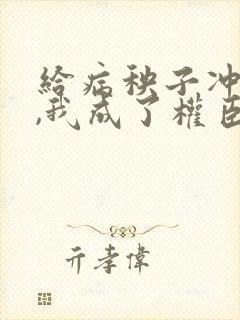 給病秧子冲
,我成了權臣
亓孝偉